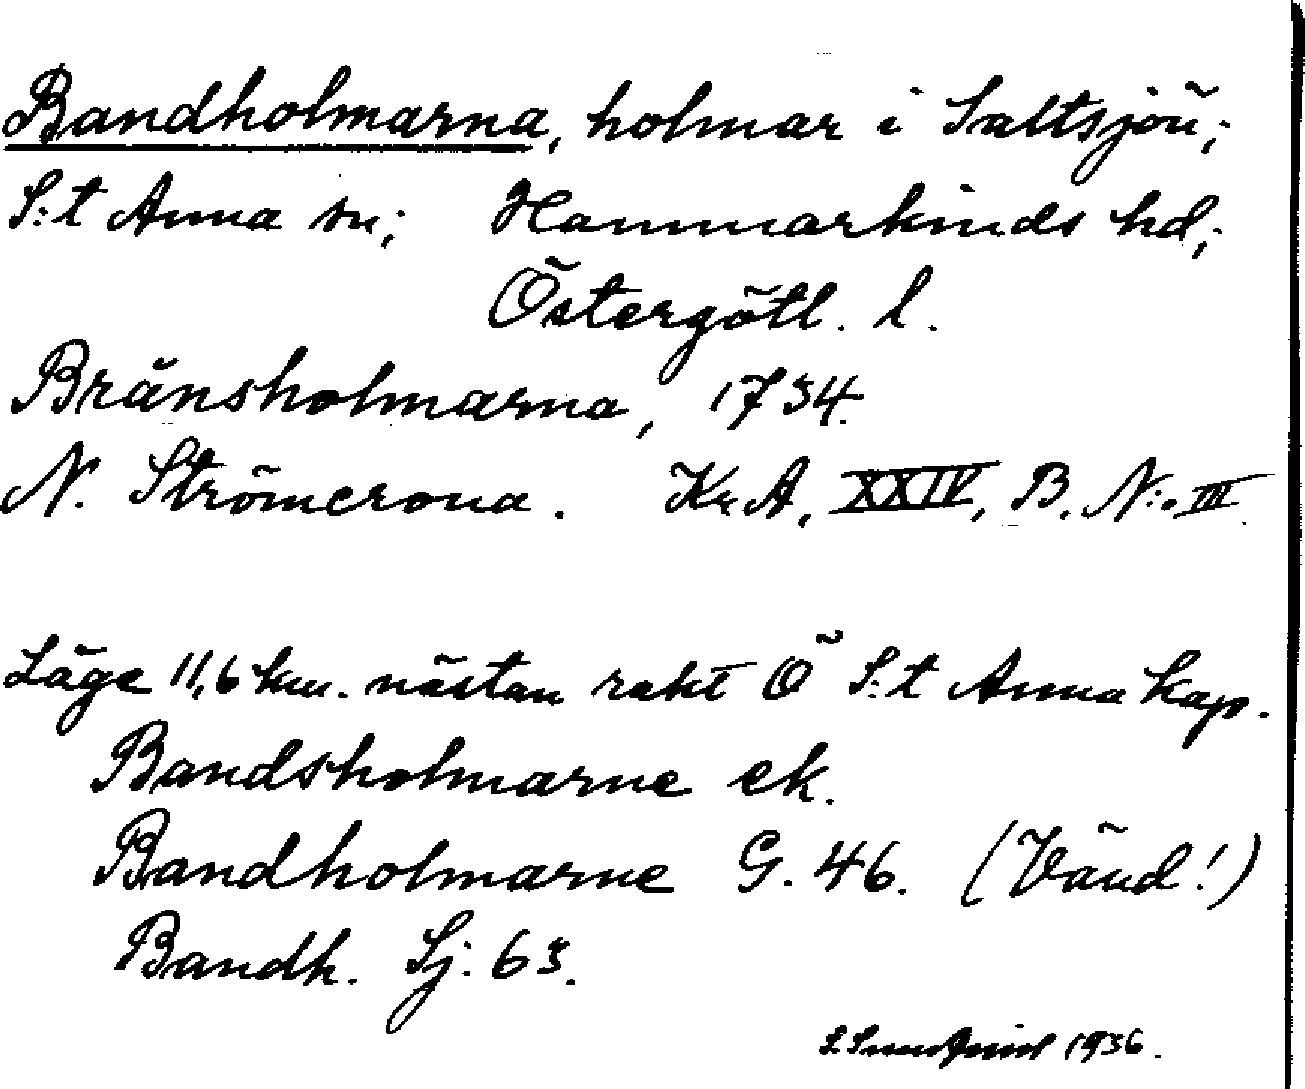 Bandholmarna, holmar i Saltsjön;
S:t Anna sn; Hammarkinds hd;
Östergötl. l.
Bränsholmarna, 1734.
N. Strömcrona. Kr. A. XXIV, B. N:o III
Läge 11,6 km. nästan rakt Ö S:t Anna kap.
Bandsholmarne ek.
Bandholmarne G. 46. (Vänd!)
Bandh. Sj. 63.
1936.